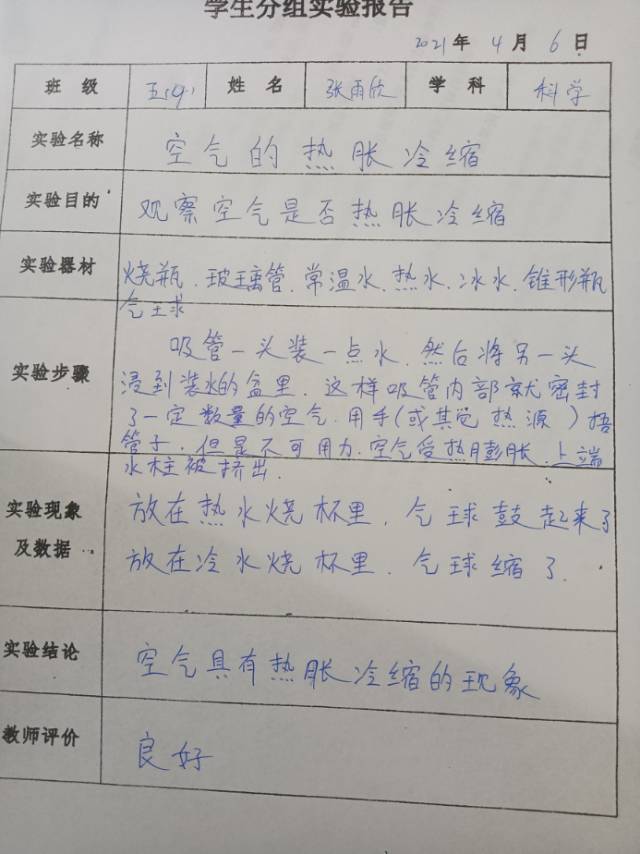 学生分组实验报告
2021年4月6日
班级 五(4) 姓名 张雨欣 学科 科学
实验名称 空气的热胀冷缩
实验目的 观察空气是否热胀冷缩
实验器材 烧瓶.玻璃管.常温水.热水.冰水.锥形瓶
气球
实验步骤
吸管一头装一点水.然后将另一头
浸到装水的盆里.这样吸管内部就密封
了一定数量的空气.用手(或其它热源)捂
管子.但是不可用力.空气受热膨胀.上端
水柱被挤出.
实验现象
及数据
放在热水烧杯里.气球鼓起来了
放在冷水烧杯里.气球缩了.
实验结论 空气具有热胀冷缩的现象
教师评价 良好